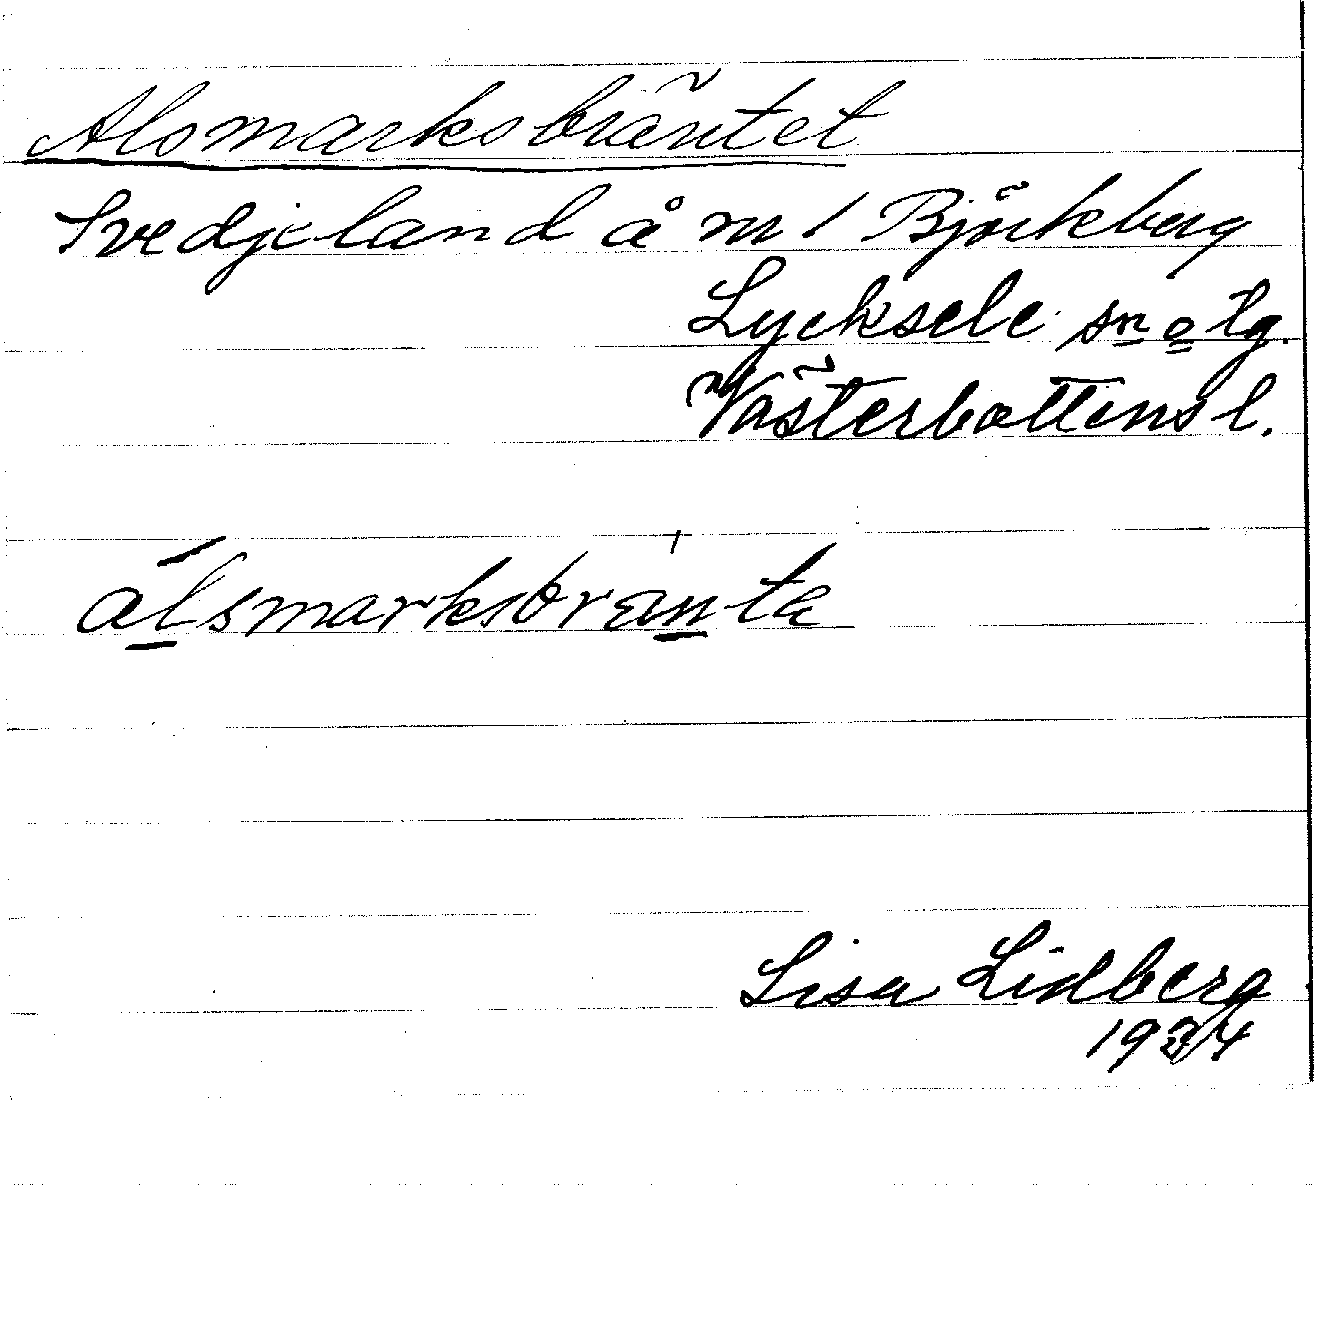 Alsmarksbräntet
Svedjeland å m / Björkberg
Lycksele sn o tg.
Västerbottens l.
álsmarksbrànta
Lisa Lidberg
1934